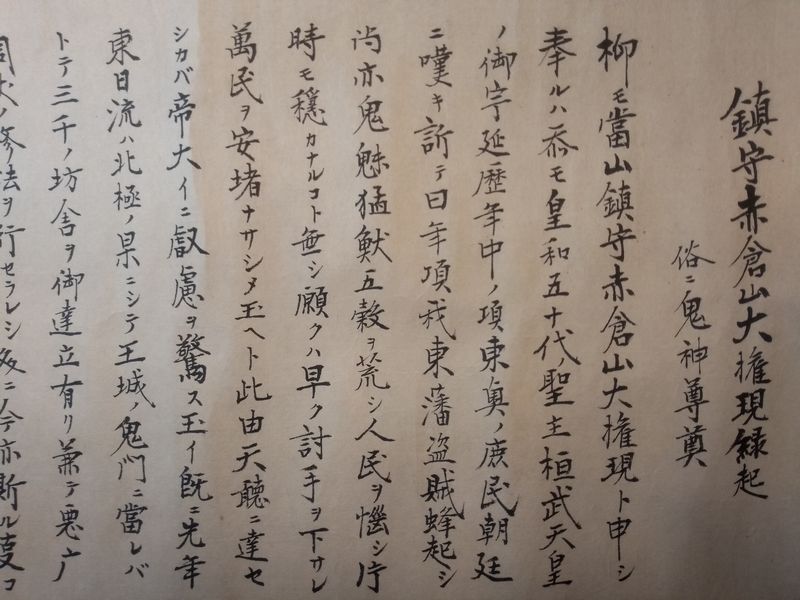 鎮守赤倉山大権現縁起
俗ニ鬼神尊奠
柳モ當山鎮守赤倉山大権現ト申シ
奉ルハ忝モ皇和五十代聖主桓武天皇
ノ御宇延歴年中ノ項東奥ノ庶民朝廷
ニ嘆キ訴テ曰年項我東藩盗賊蜂起シ
尚亦鬼魅猛獣五穀ヲ荒シ人民ヲ惱シ片
時モ穏カナルコト無シ願クハ早ク討手ヲ下サレ
萬民ヲ安堵ナサシメ玉ヘト此由天聽ニ達セ
シカバ帝大イニ叡慮ヲ驚ス玉イ既ニ先年
東日流ハ北極ノ果ニシテ王城ノ鬼門ニ當レバ
トテ三千ノ坊舎ヲ御達立有リ兼テ悪
ノ修法ヲ行セラレシ今亦斯ル